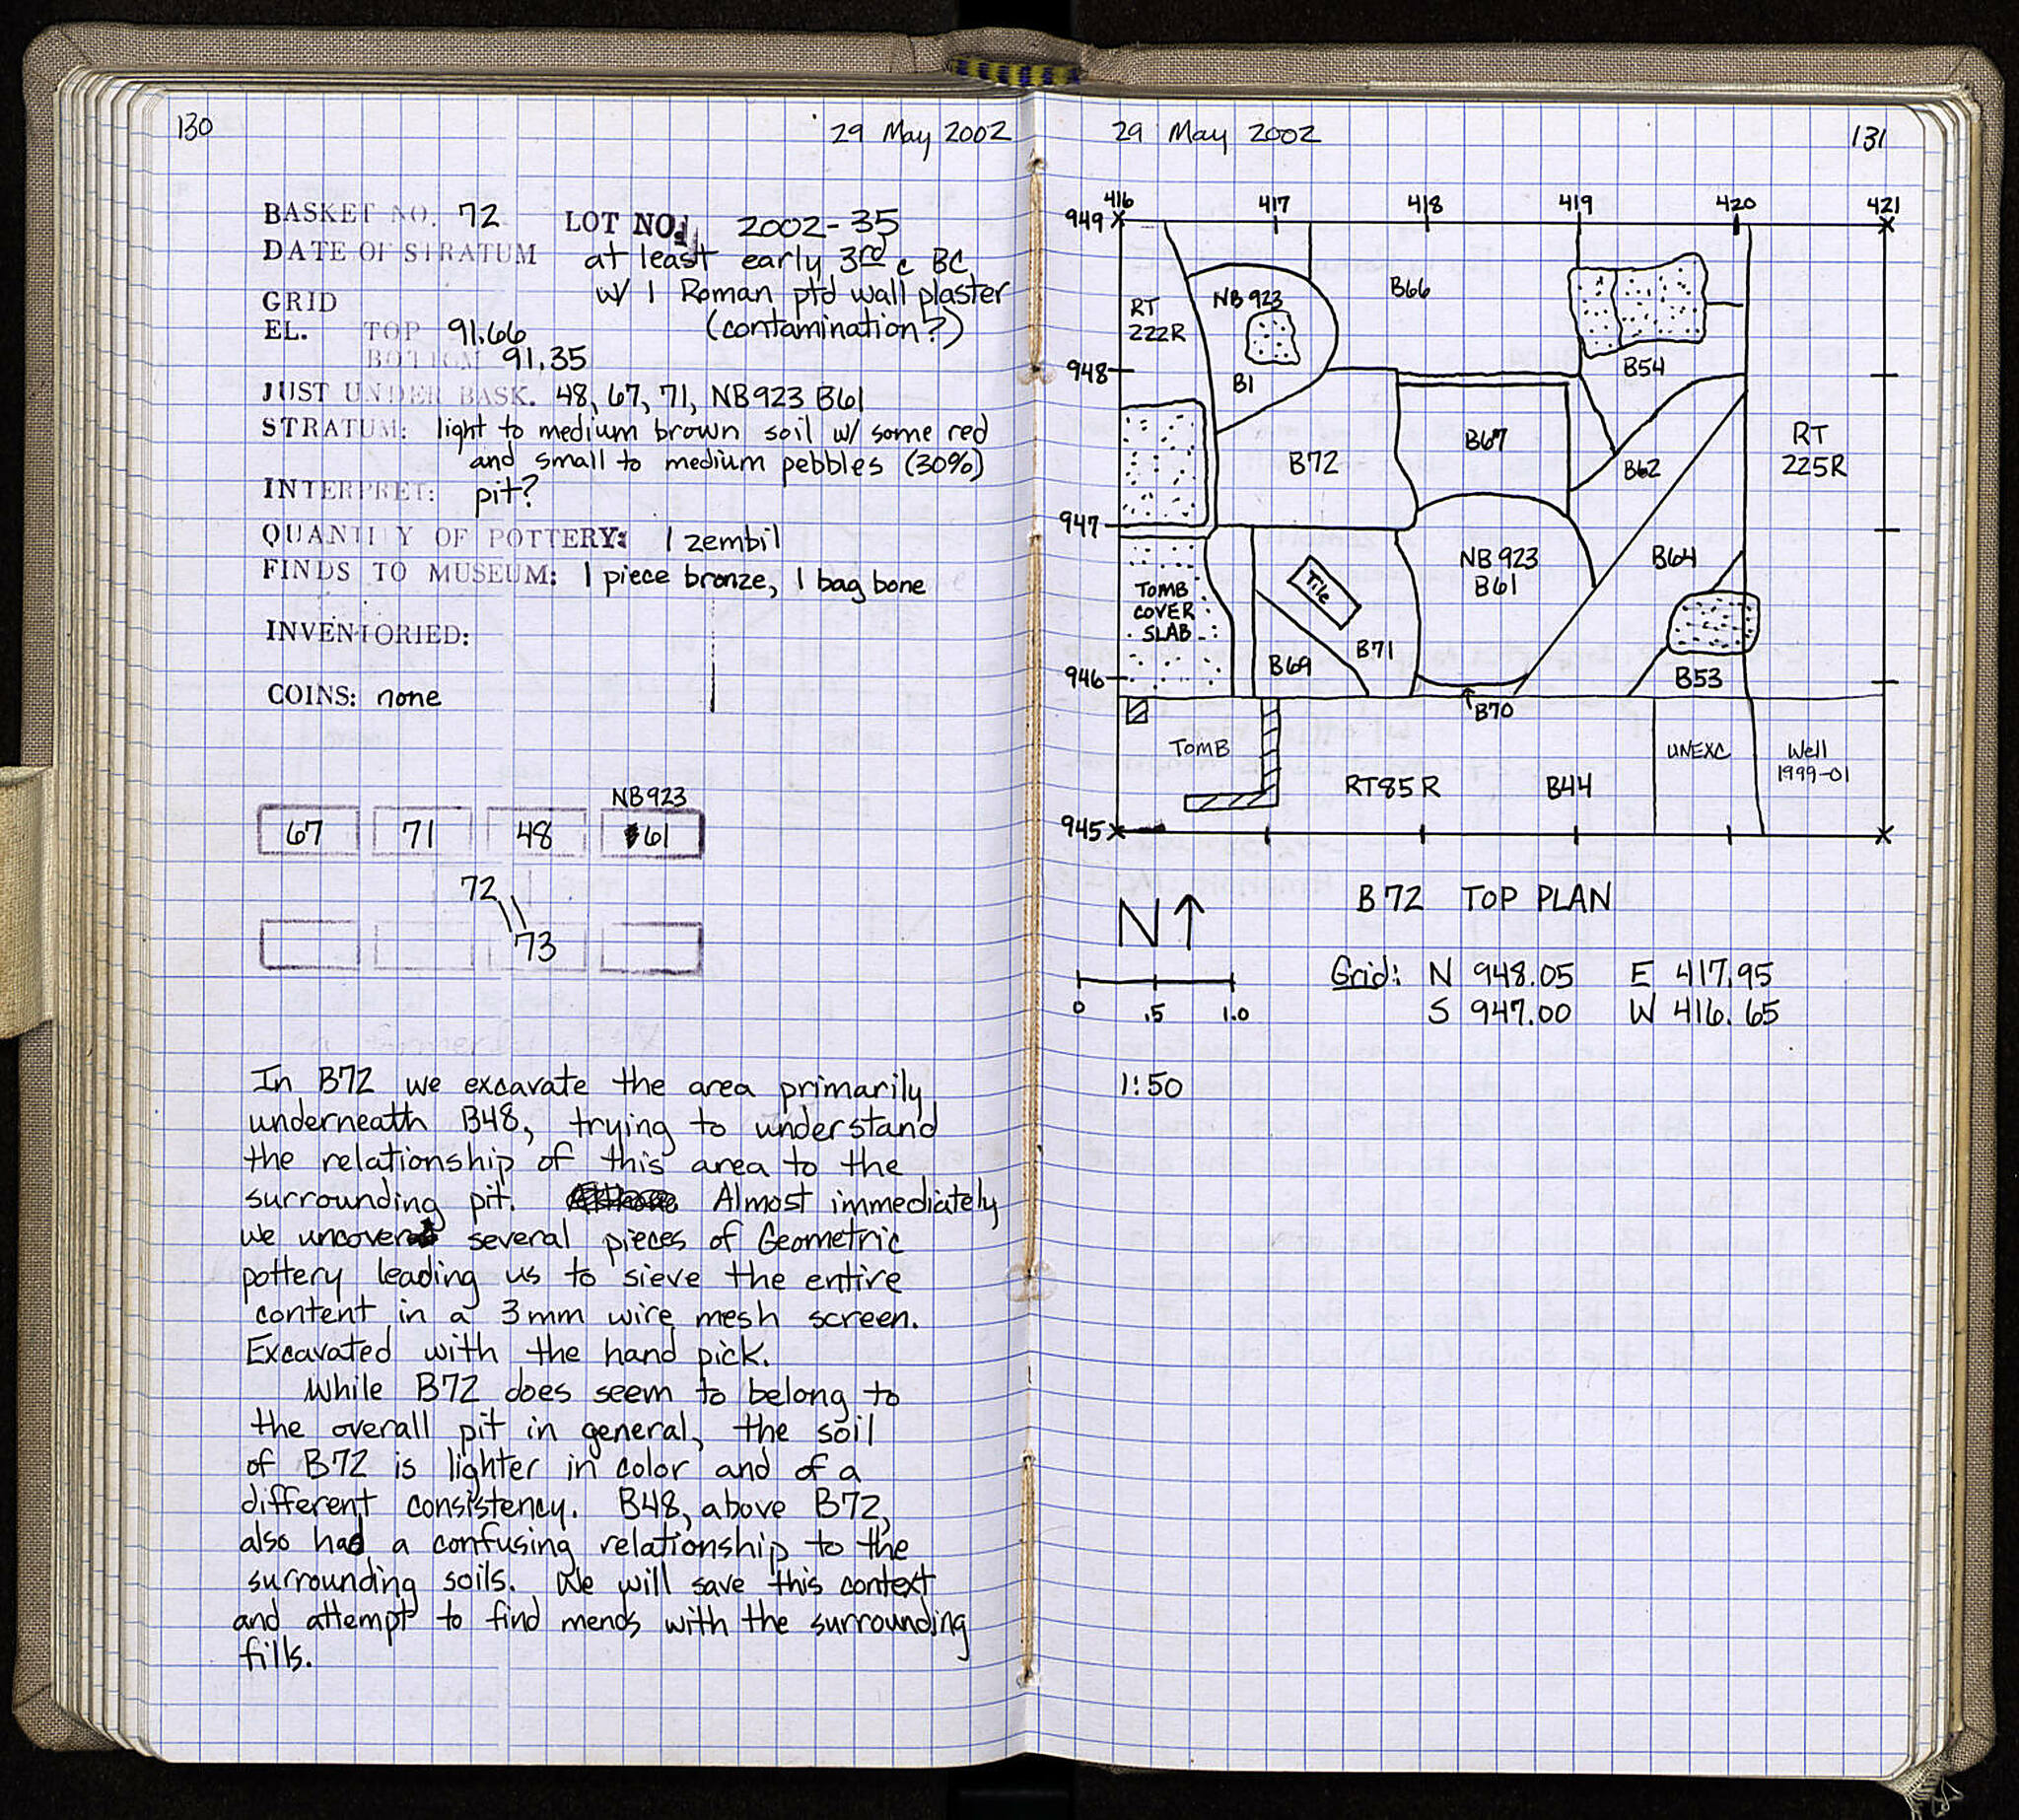 130
29 May 2002
BASKET NO. 72 LOT NO. 2002-35
DATE OF STRATUM at least early 3rd c BC
w/ 1 Roman ptd wall plaster
GRID
(contamination?)
EL. TOP 91.66
BOTTOM 91.35
JUST UNDER BASK. 48, 67, 71, NB923 B61
STRATUM: light to medium brown soil w/ some red
and small to medium pebbles (30%)
INTERPRET: pit?
QUANTITY OF POTTERY: 1 zembil
FINDS TO MUSEUM: 1 piece bronze, 1 bag bone
INVENTORIED:
COINS: none
NB923
67 71 48 61
72
73
In B72 we excavate the area primarily
underneath B48, trying to understand
the relationship of this area to the
surrounding pit. Almost immediately
we uncover several pieces of Geometric
pottery leading us to sieve the entire
content in a 3mm wire mesh screen.
Excavated with the hand pick.
While B72 does seem to belong to
the overall pit in general, the soil
of B72 is lighter in color and of a
different consistency. B48, above B72,
also had a confusing relationship to the
surrounding soils. We will save this context
and attempt to find mends with the surrounding
fills.
29 May 2002
131
416 417 418 419 420 421
949
NB 923
B66
RT
222R
948
B54
B1
B67
RT
225R
B72
B62
947
NB 923
B61
B64
Tile
TOMB
COVER
SLAB
B71
B69
946
B53
B70
TOMB
UNEXC
Well
1999-01
RT85R
B44
945
B72 TOP PLAN
N↑
Grid: N 948.05 E 417.95
S 947.00 W 416.65
0 .5 1.0
1:50